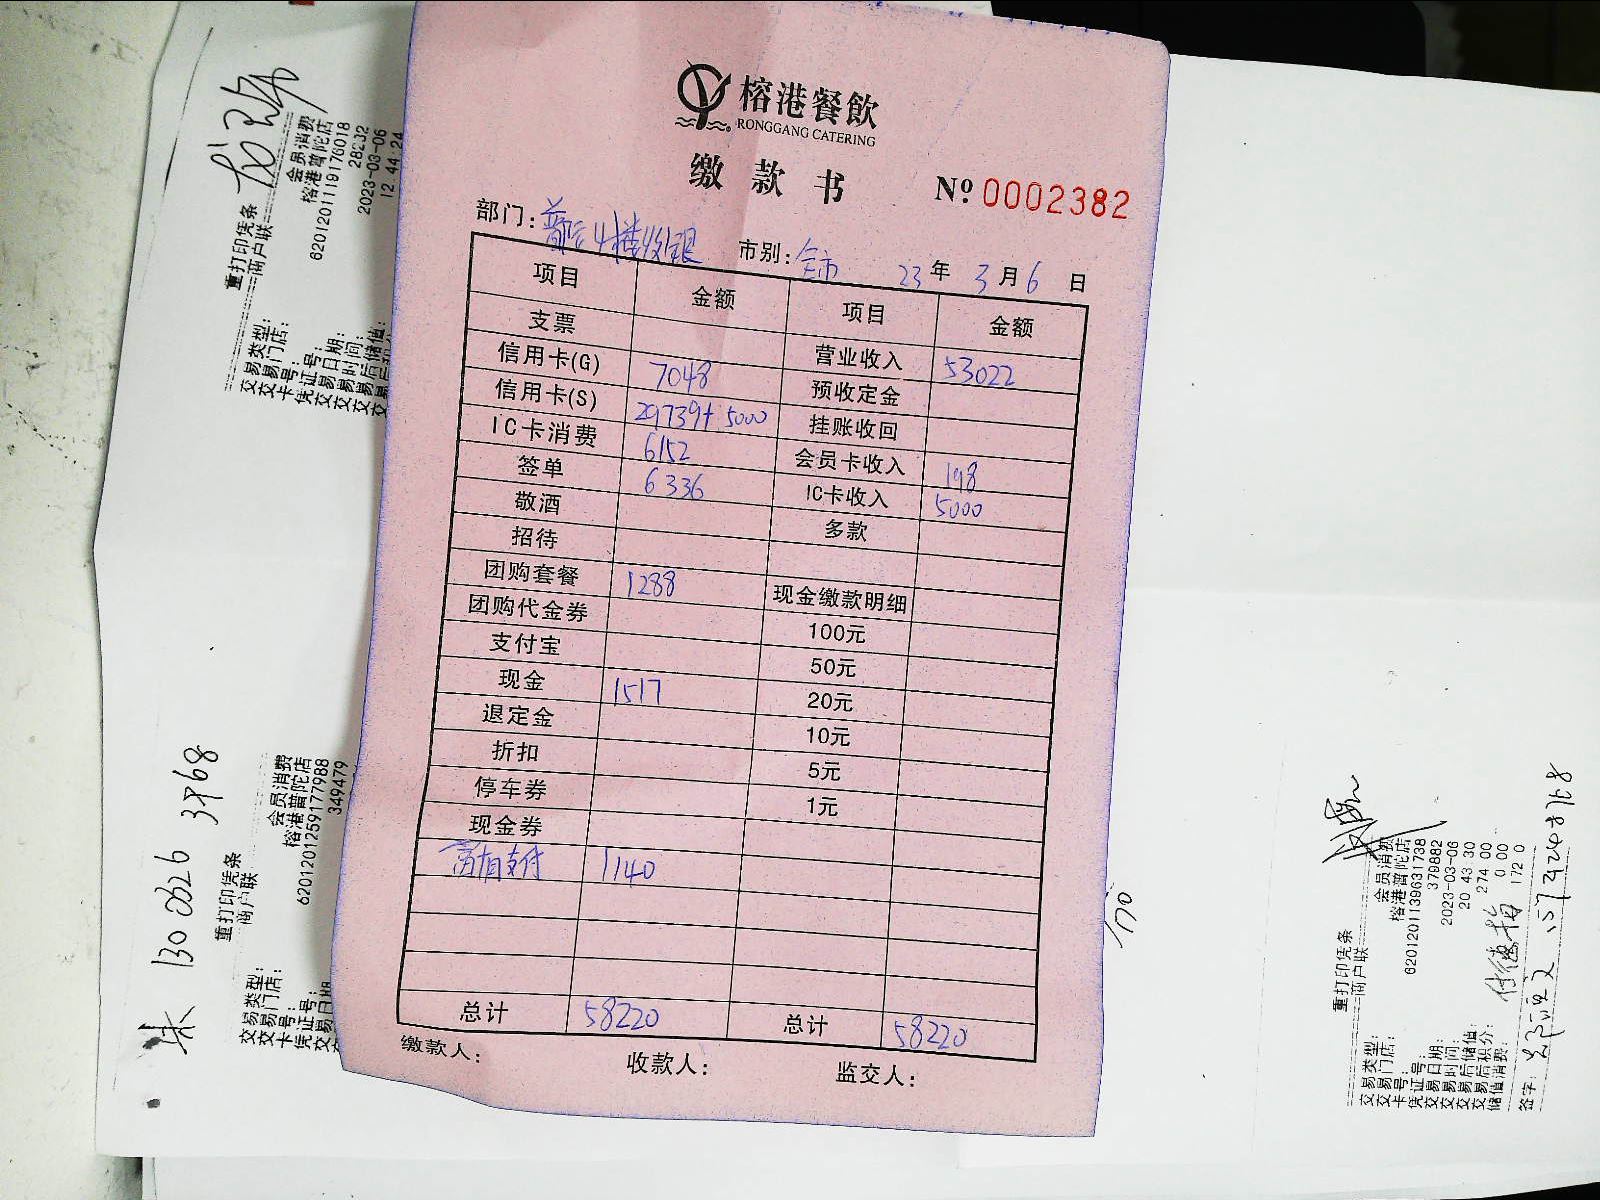 榕港餐飲
RONGGANG CATERING
缴款书
№ 0002382
部门: 普陀4楼收银 市别: 全市 23年 3月6日
项目 金额 项目 金额
支票 营业收入 53022
信用卡(G) 7048 预收定金
信用卡(S) 29739+5000 挂账收回
IC卡消费 6152 会员卡收入 198
签单 6336 IC卡收入 5000
敬酒 多款
招待
团购套餐 1288 现金缴款明细
团购代金券 100元
支付宝 50元
现金 1517 20元
退定金 10元
折扣 5元
停车券 1元
现金券
支付 1140
总计 58220 总计 58220
缴款人: 收款人: 监交人:
重打印凭条
商户联
交易类型: 会员消费
交易门店: 榕港普陀店
卡号: 6201201119176018
凭证号: 28232
交易日期: 2023-03-06
交易时间: 12 44 24
交易后储值:
130 0626 3968
重打印凭条
商户联
交易类型: 会员消费
交易门店: 榕港普陀店
卡号: 6201201259177988
凭证号: 349479
交易日期
170
重打印凭条
商户联
交易类型: 会员消费
交易门店: 榕港普陀店
卡号: 6201201139631738
凭证号: 379882
交易日期: 2023-03-06
交易时间: 20 43 30
交易后储值: 274 00
交易后积分: 0 00
储值消费: 172 0
签字: